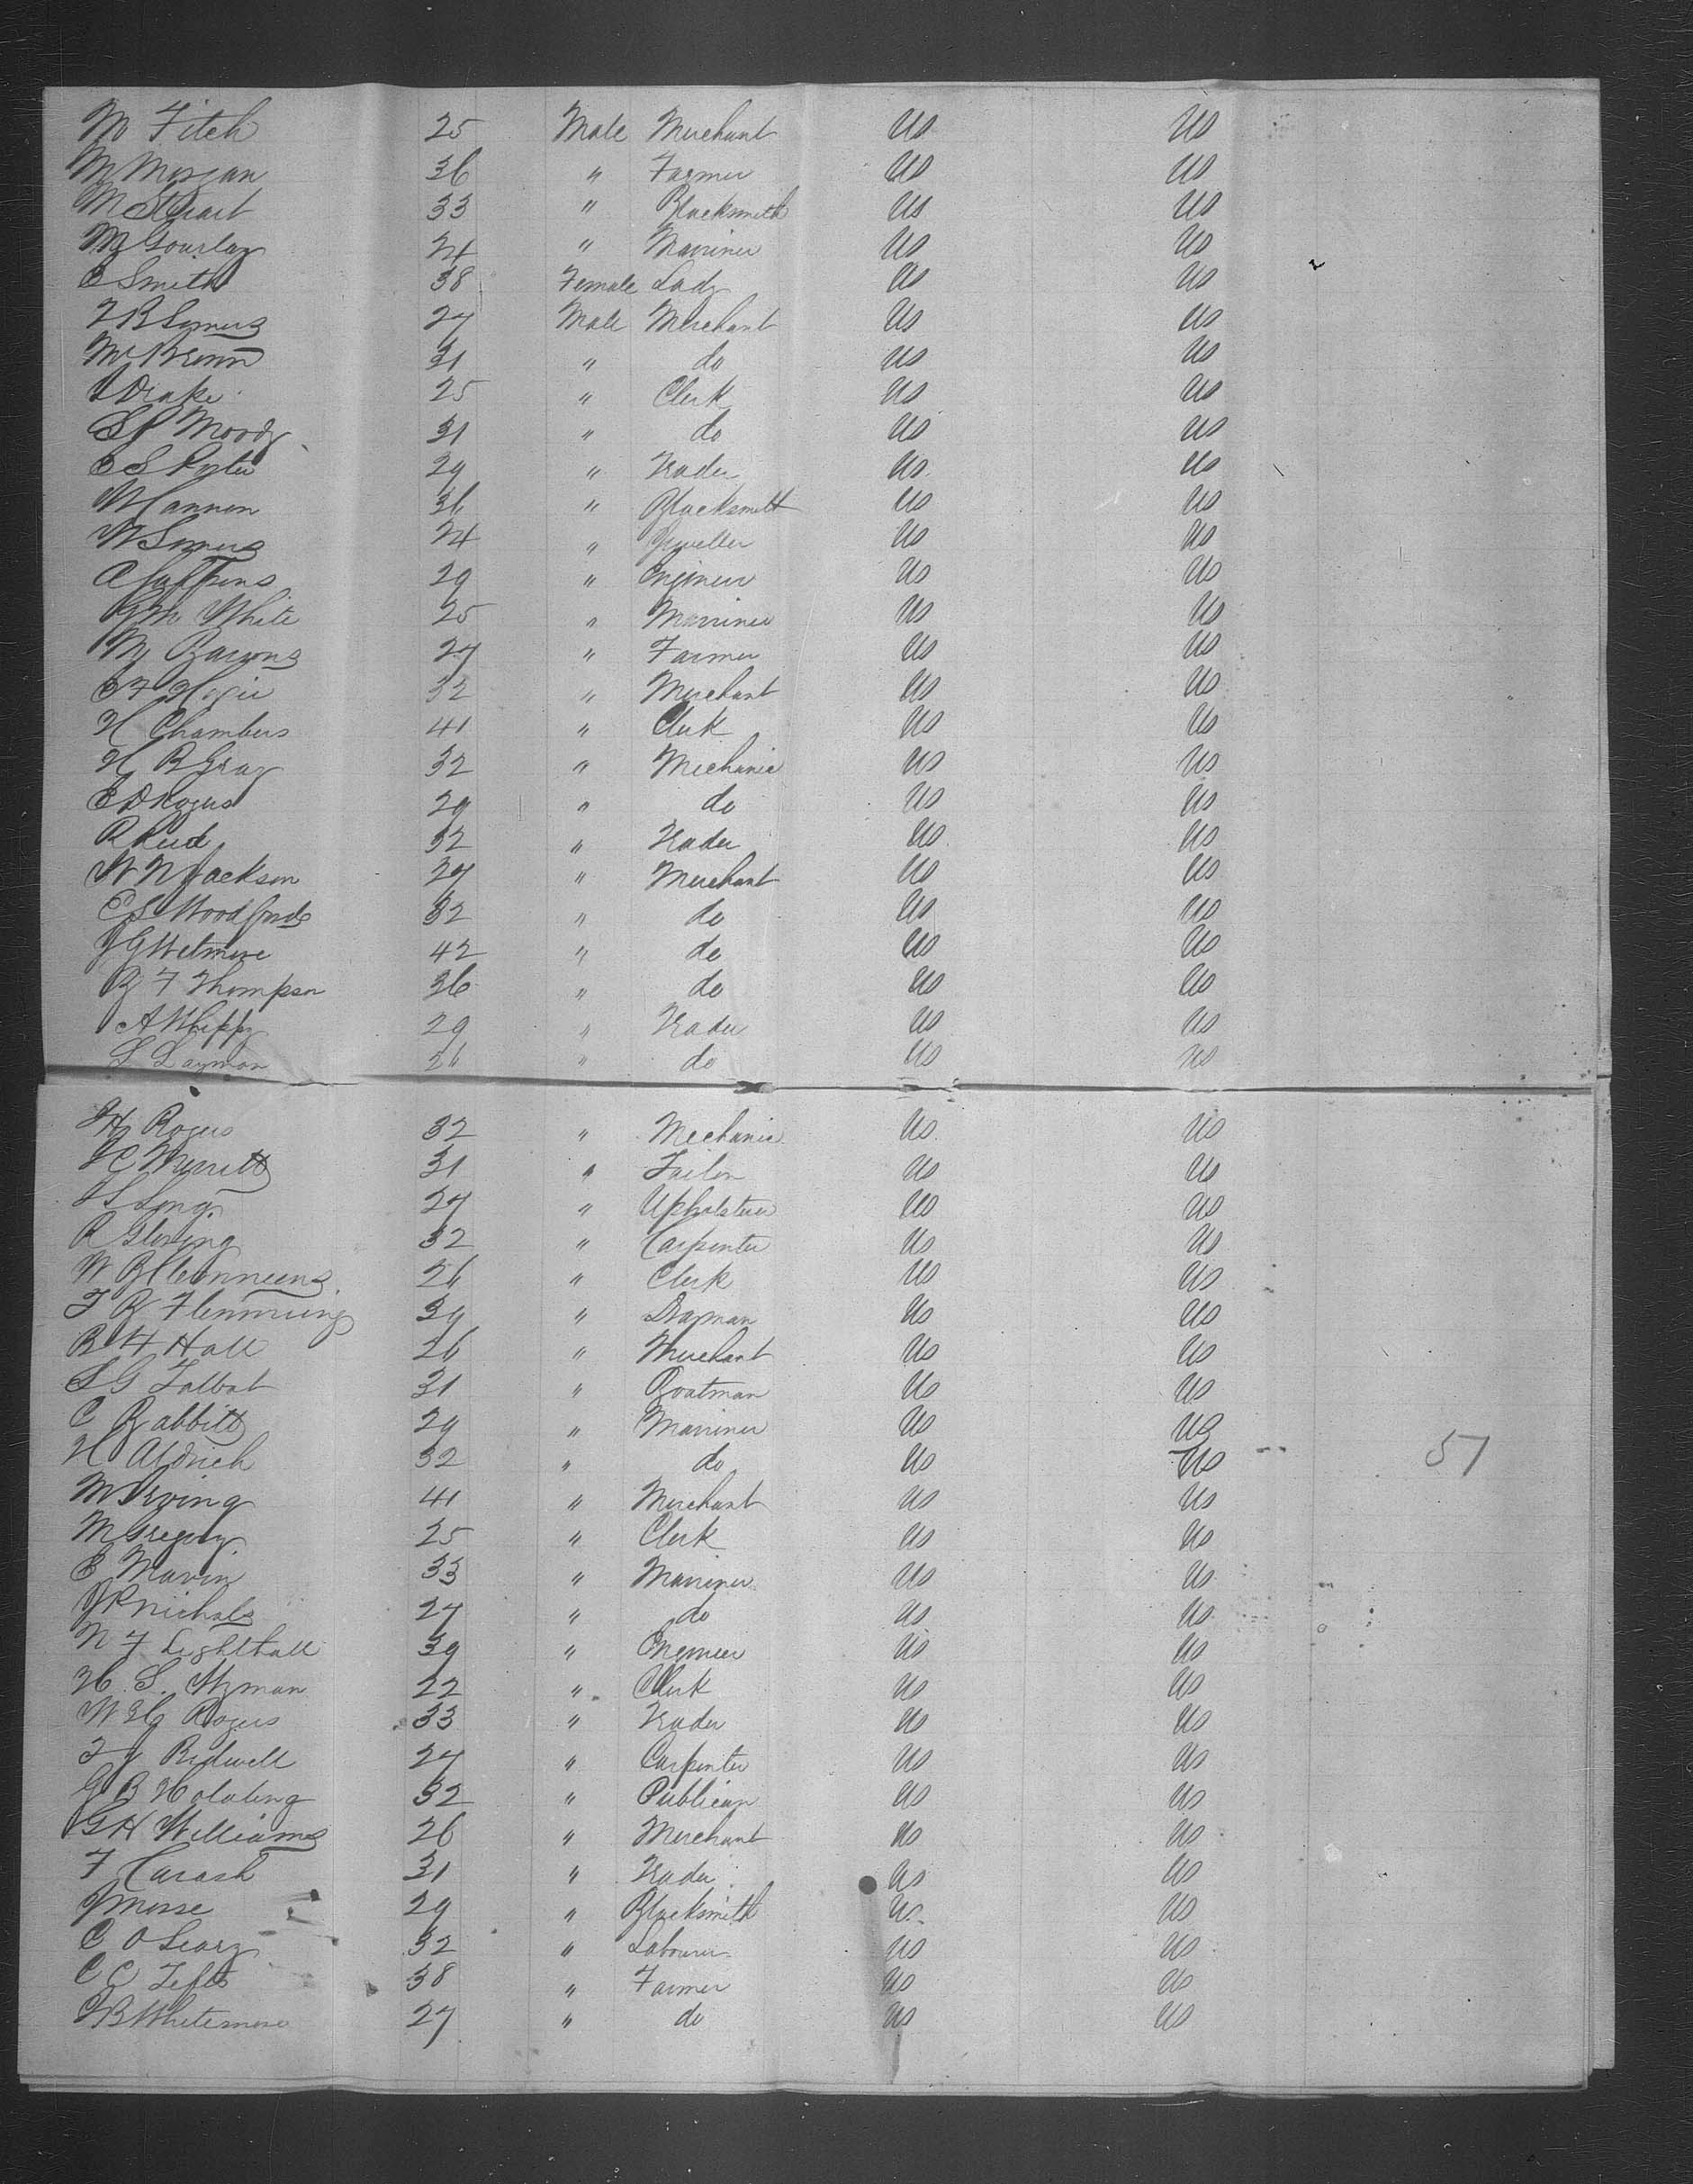 M Fitch 25 Male Merchant US US
M Morgan 36 " Farmer US US
M Stuart 33 " Blacksmith US US
M Gourlay 24 " Marriner US US
E Smith 38 Female Lady US US
27 Male Merchant US US
Mc Brown 31 " do US US
Drake 25 " Clerk US US
Moody 31 " do US US
E S Porter 29 " Trader US US
W Cannon 36 " Blacksmith US US
W Somers 24 " Jeweller US US
29 " Engineer US US
White 25 " Marriner US US
M Barrons 27 " Farmer US US
32 " Merchant US US
H Chambers 41 " Clerk US US
H B Gray 32 " Mechanic US US
E D Rogers 29 " do US US
R Reed 32 " Trader US US
W N Jackson 27 " Merchant US US
E S Woodfords 32 " do US US
J G Wetmore 42 " do US US
B F Thompson 36 " do US US
A Whippy 29 " Trader US US
L Layman 26 " do US US
H Rogers 32 " Mechanic US US
Merritt 31 " Tailor US US
S Long 27 " Upholsterer US US
R 32 " Carpenter US US
W B Clemmens 26 " Clerk US US
T B Flemming 39 " Drayman US US
B H Hall 26 " Merchant US US
S G Talbot 31 " Boatman US US
C Babbitt 29 " Marriner US US
H Aldrich 32 " do US US 57
M Irving 41 " Merchant US US
M Gregory 25 " Clerk US US
E Mavin 33 " Marriner US US
J R Nichols 27 " do US US
N F Lighthall 39 " Engineer US US
H S. Wyman 22 " Clerk US US
Rogers 33 " Trader US US
Bidwell 27 " Carpenter US US
G B Holating 32 " Publican US US
G H Williams 26 " Merchant US US
F Carash 31 " Trader US US
J Morse 29 " Blacksmith US US
C O Leary 32 " Labourer US US
C C Tefts 38 " Farmer US US
Whitemore 27 " do US US